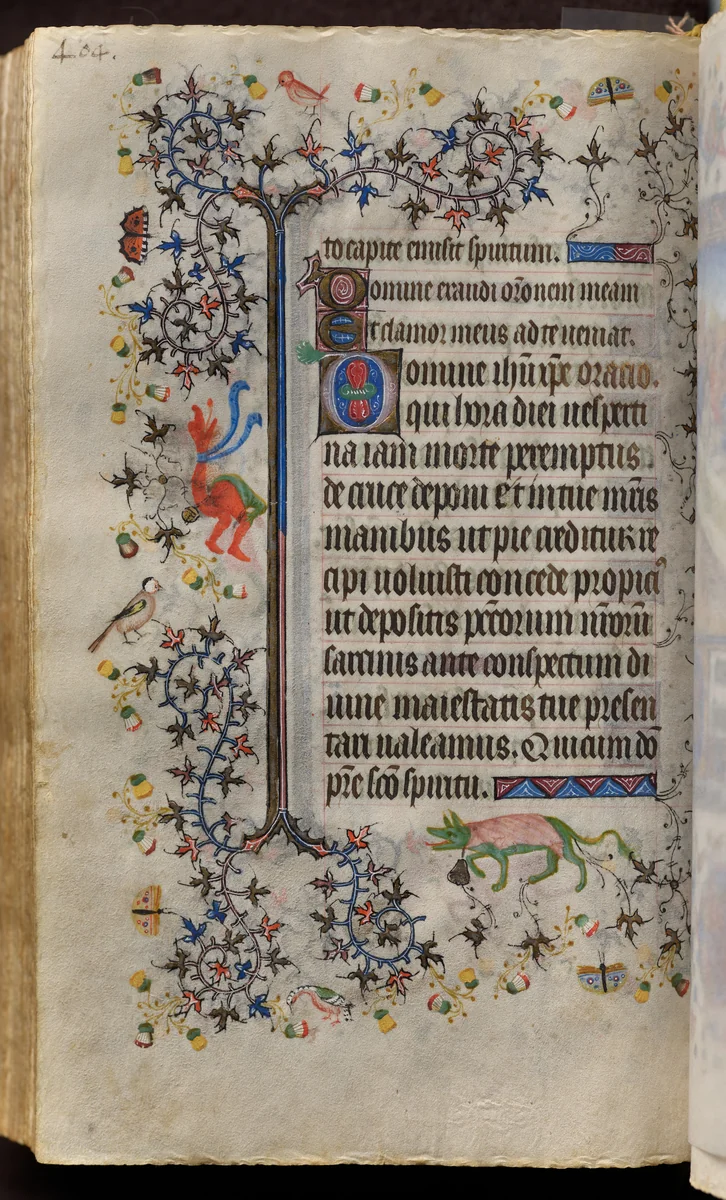 404.
to capite emisit spiritum.
Domine exaudi orōnem meam
Et clamor meus ad te ueniat.
Domine ihū xp̄e oracio.
qui hora diei uesperti
na iam morte peremptus
de cruce deponi et in tue mr̄is
manibus ut pie creditur re
cipi uoluisti concede propiciꝰ
ut depositis pc̄corum nr̄orū
sarcinis ante conspectum di
uine maiestatis tue presen
tari ualeamus. Qui cum dō
pr̄e sc̄o spiritu.